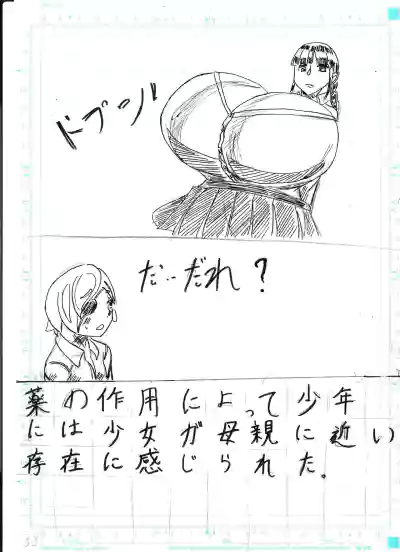 ドプンッ
だ…だれ？
薬の作用によって少年
には少女が母親に近い
存在に感じられた。